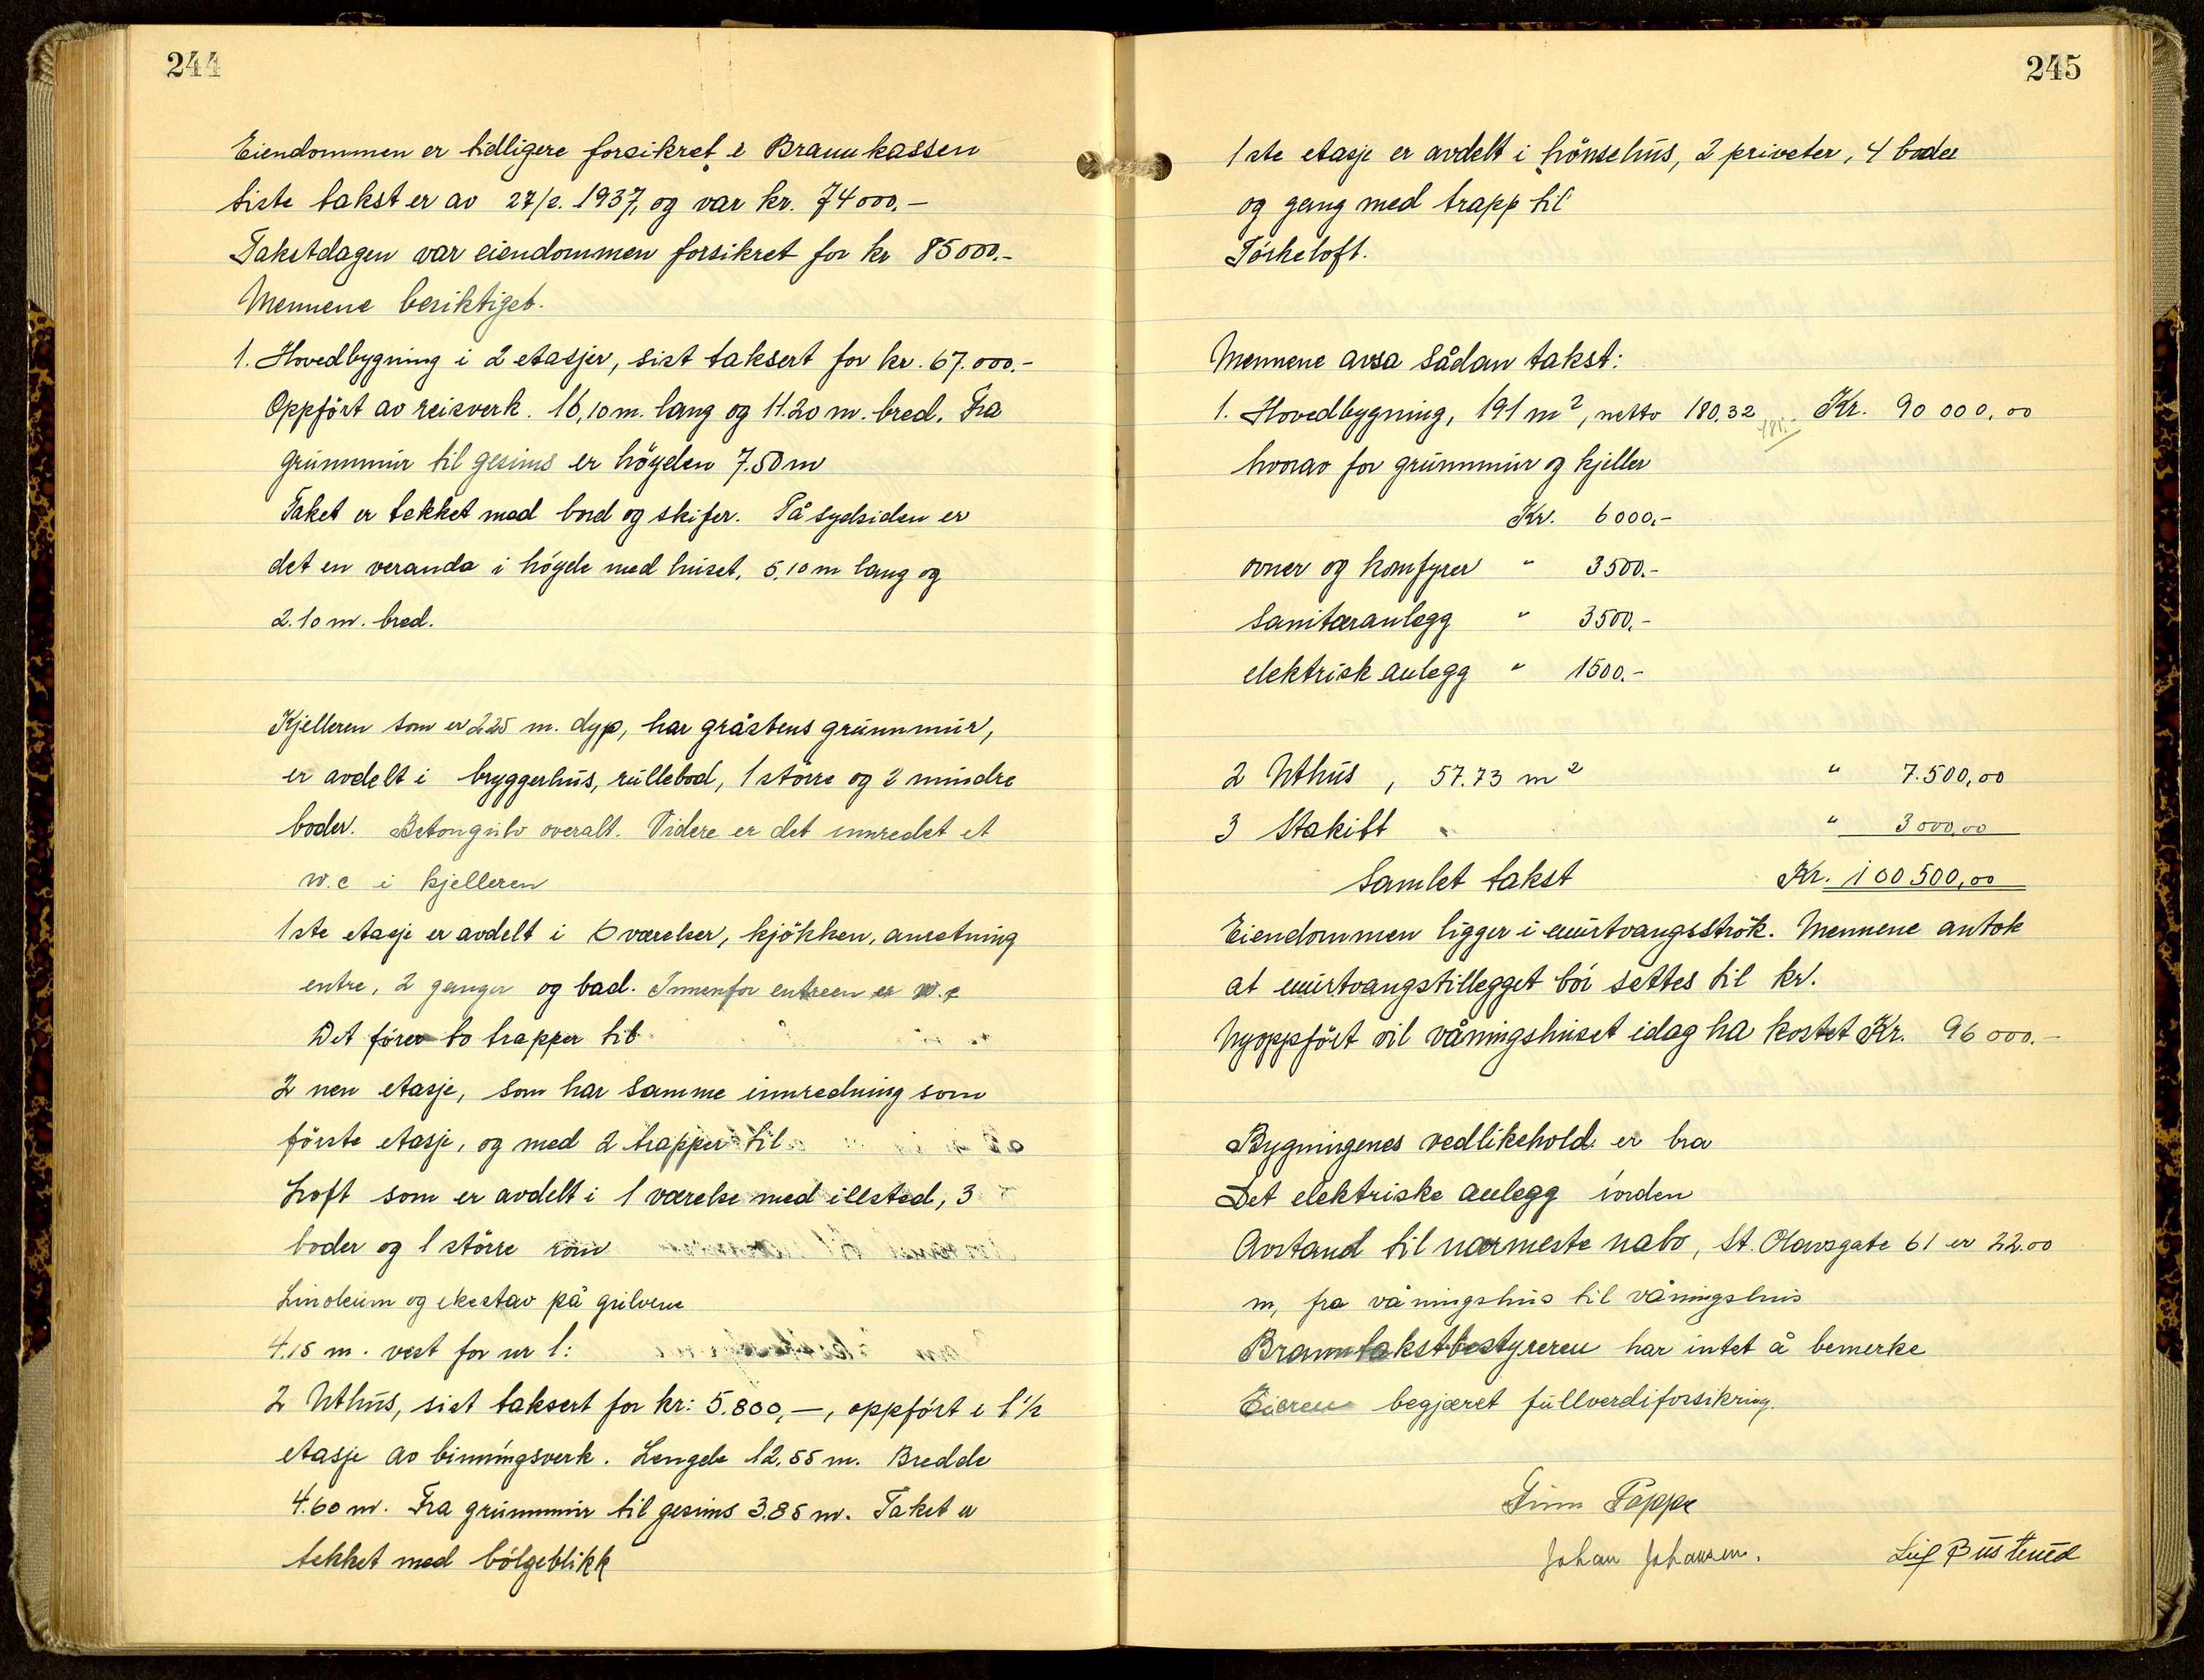 244
Eiendommen er tidligere forsikret i Brannkassen
siste takst er av 27/2. 1937, og var kr. 74000.-
Takstdagen var eiendommen forsikret for kr 85000.-
Mennene besiktiget.
1. Hovedbygning i 2 etasjer, sist taksert for kr. 67.000.-
Oppført av reisverk. 16,10 m. lang og 11.20 m. bred. Fra
grunnmur til gesims er höyden 7.50 m
Taket er tekket med bord og skifer. På sydsiden er
det en veranda i höyde med huset, 5,10 m lang og
2.10 m. bred.
Kjelleren som er 2.25 m. dyp, har gråstens grunnmur,
er avdelt i bryggerhus, rullebod, 1 större og 2 mindre
boder. Betongulv overalt. Videre er det innredet et
w.c i kjelleren
1ste etasje er avdelt i 6 værelser, kjökken, anretning
entre, 2 ganger og bad. Innenfor entreen er w.c
Det förer to trapper til
2 nen etasje, som har samme innredning som
förste etasje, og med 2 trapper til
Loft som er avdelt i 1 værelse med illsted, 3
boder og 1 större rom
Linoleum og ekestav på gulvene
4.15 m. vest for nr 1:
2 Uthus, sist taksert for kr: 5.800,-, oppfört i 1 1/2
etasje av binningsverk. Lengde 12.55 m. Bredde
4.60 m. Fra grunnmur til gesims 3.85 m. Taket er
tekket med bölgeblikk
245
1ste etasje er avdelt i hönsehus, 2 priveter, 4 boder
og gang med trapp til
Törkeloft.
Mennene avsa sådan takst:
1. Hovedbygning, 191 m², netto 180,32 Kr. 90 000,00
181.-
hvorav for grunnmur og kjeller
Kr. 6000,-
ovner og komfyrer " 3500.-
Sanitæranlegg " 3500,-
elektrisk anlegg " 1500.-
2 Uthus, 57.73 m² " 7.500,00
3 Stakitt " 3000,00
Samlet takst Kr. 100500,00
Eiendommen ligger i murtvangsströk. Mennene antok
at murtvangstillegget bör settes til kr.
Nyoppfört vil våningshuset idag ha kostet Kr. 96000.-
Bygningenes vedlikehold er bra
Det elektriske anlegg iorden
Avstand til nærmeste nabo, St. Olavsgate 61 er 22.00
m, fra våningshus til våningshus
Branntakstbestyreren har intet å bemerke
Eieren begjæret fullverdiforsikring.
Finn Poppe
Johan Johansen.
Leif Busterud